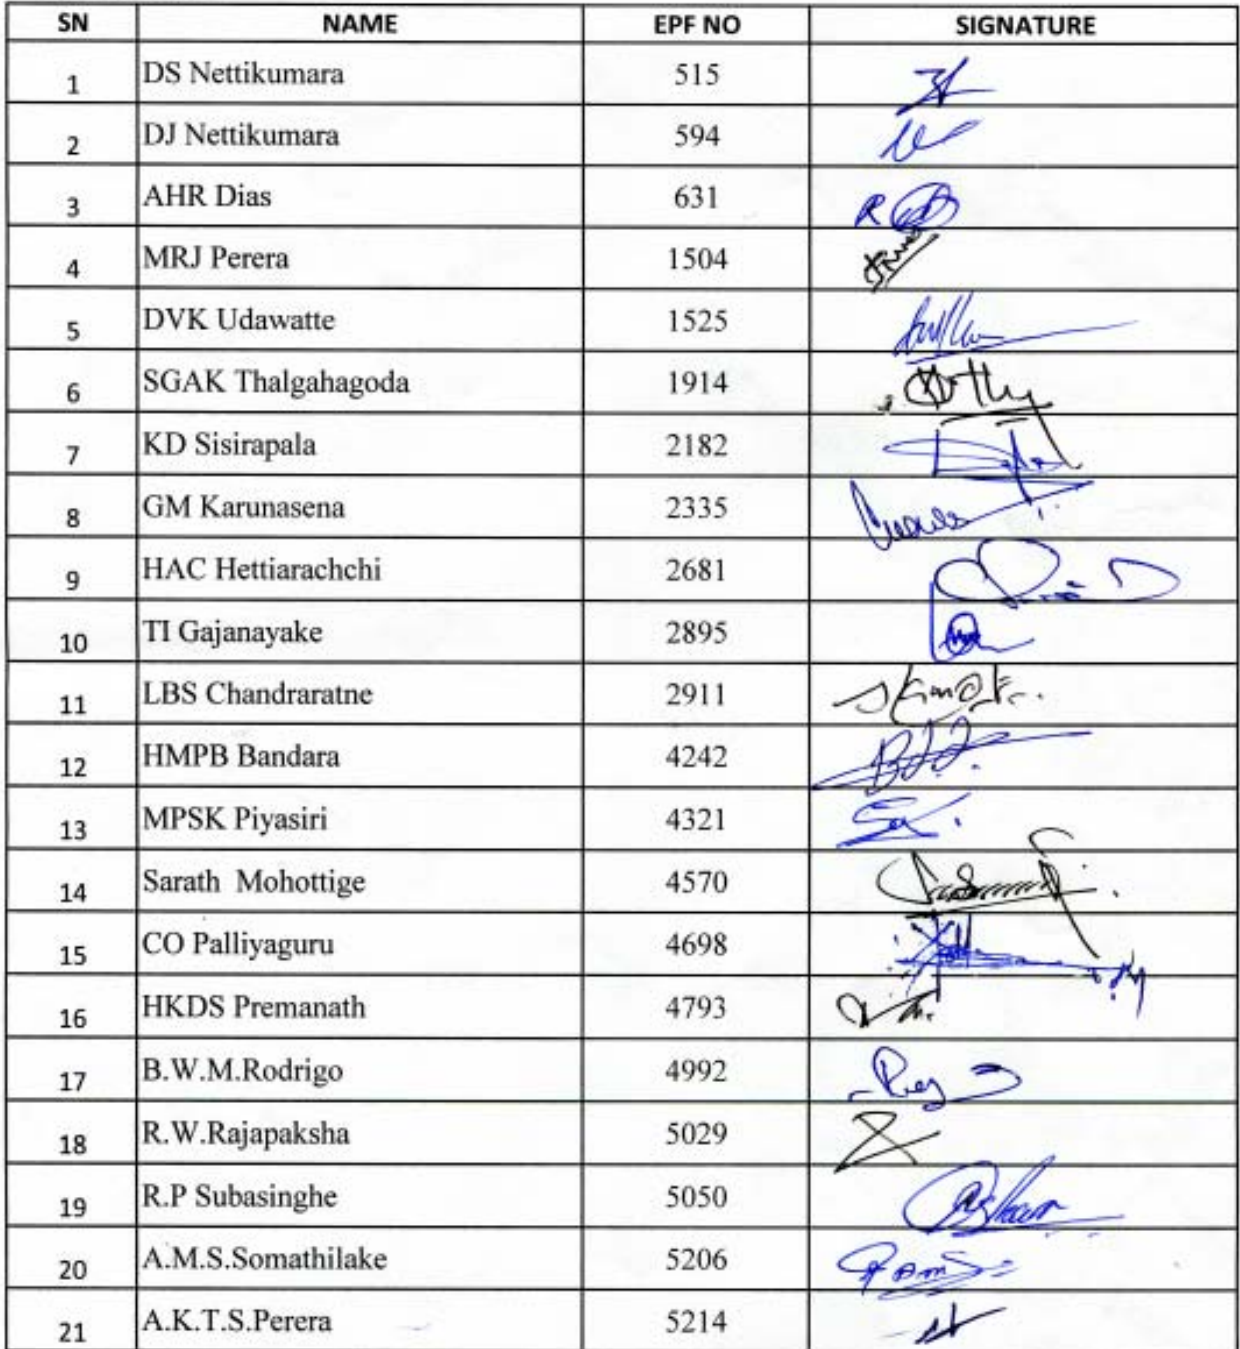 SN NAME EPF NO SIGNATURE
1 DS Nettikumara 515
2 DJ Nettikumara 594
3 AHR Dias 631
4 MRJ Perera 1504
5 DVK Udawatte 1525
6 SGAK Thalgahagoda 1914
7 KD Sisirapala 2182
8 GM Karunasena 2335
9 HAC Hettiarachchi 2681
10 TI Gajanayake 2895
11 LBS Chandraratne 2911
12 HMPB Bandara 4242
13 MPSK Piyasiri 4321
14 Sarath Mohottige 4570
15 CO Palliyaguru 4698
16 HKDS Premanath 4793
17 B.W.M.Rodrigo 4992
18 R.W.Rajapaksha 5029
19 R.P Subasinghe 5050
20 A.M.S.Somathilake 5206
21 A.K.T.S.Perera 5214